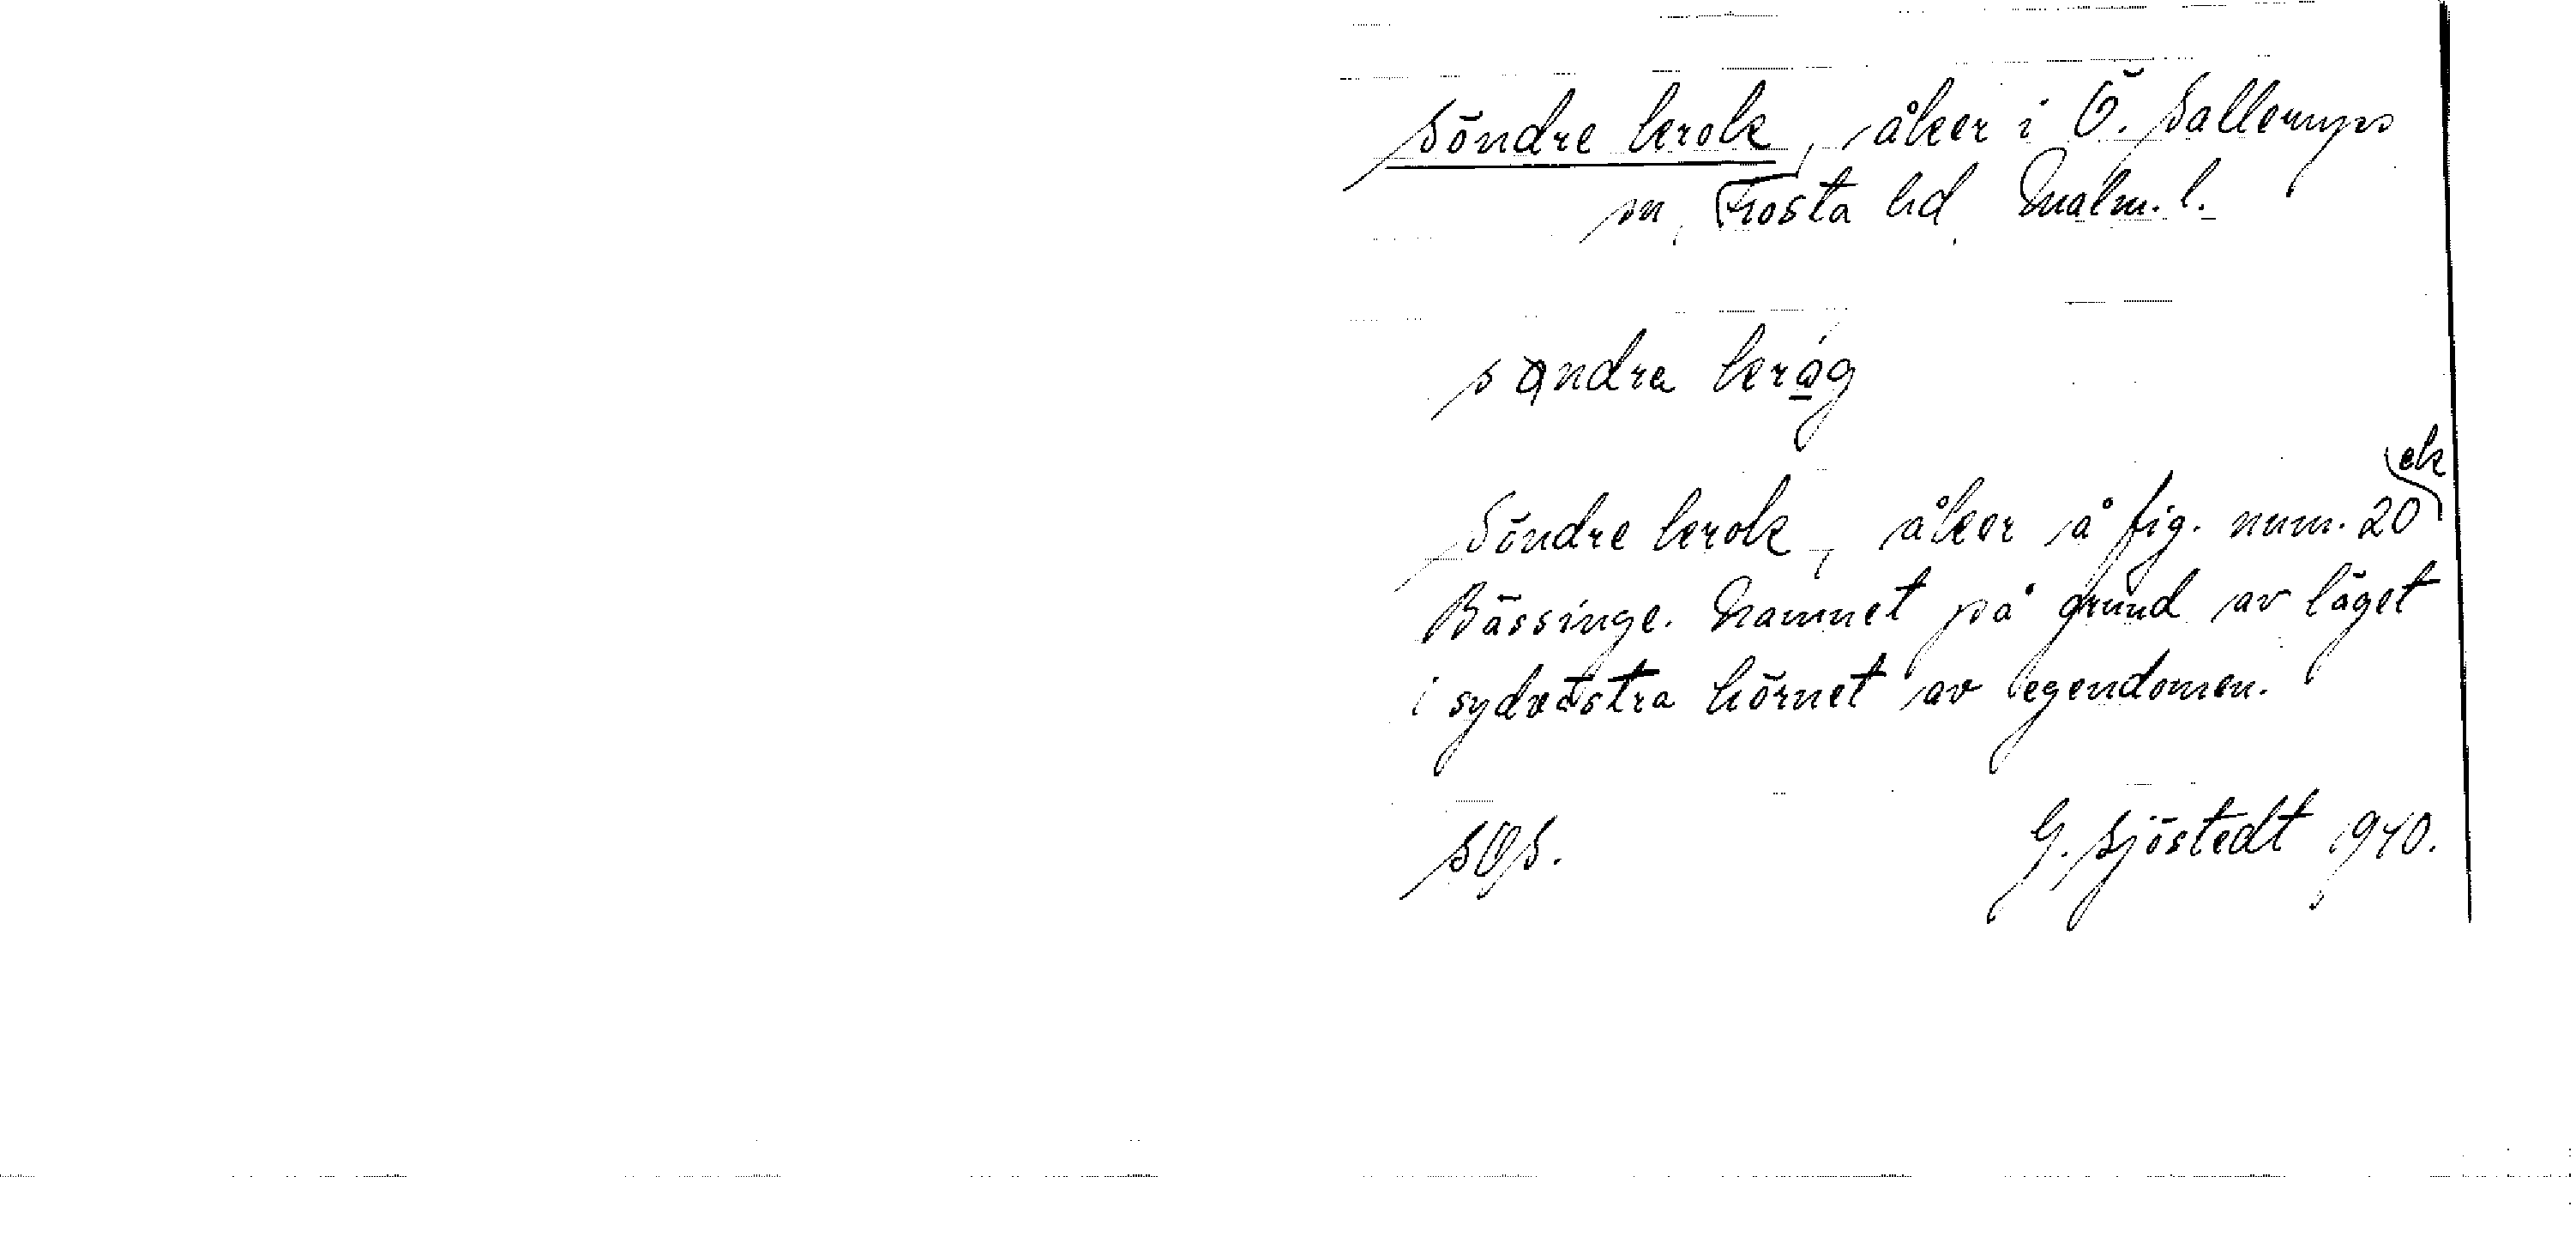 Söndre krok, åker i Ö. Sallerups
sn, Frosta hd, Malm. l.
Söndre krok, åker å fig. num. 20 ek
Bässinge. Namnet på grund av läget
i sydvästra hörnet av egendomen.
SOS. G. Sjöstedt 1940.